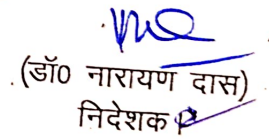 (डॉ0 नारायण दास)
निदेशक